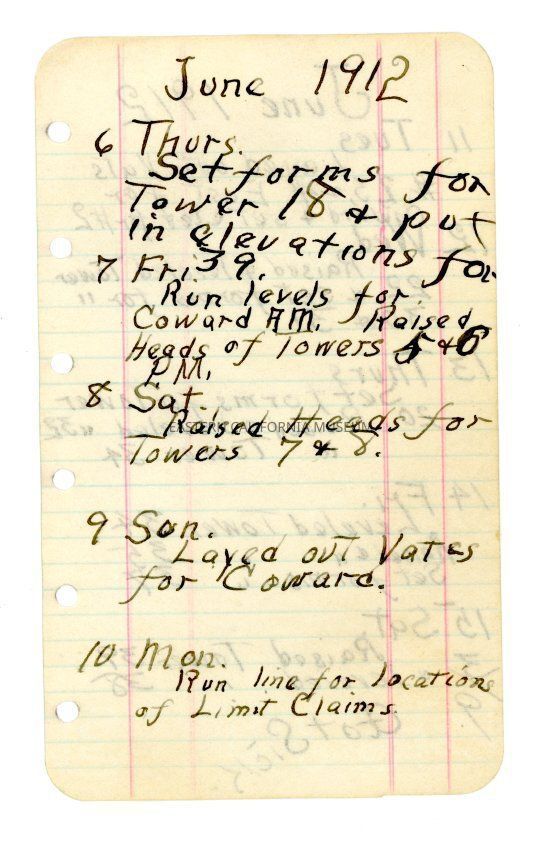 June 1912
6 Thurs.
Set forms for
Tower 18 & put
in elevations for
39.
7 Fri
Run levels for
Coward A.M. Raised
Heads of Towers 5 & 6
P.M.
8 Sat.
Raised Heads for
EASTERN CALIFORNIA MUSEUM
Towers 7 & 8.
9 Son.
Layed out Vates
for Coward.
10 Mon.
Run line for locations
of Limit Claims.